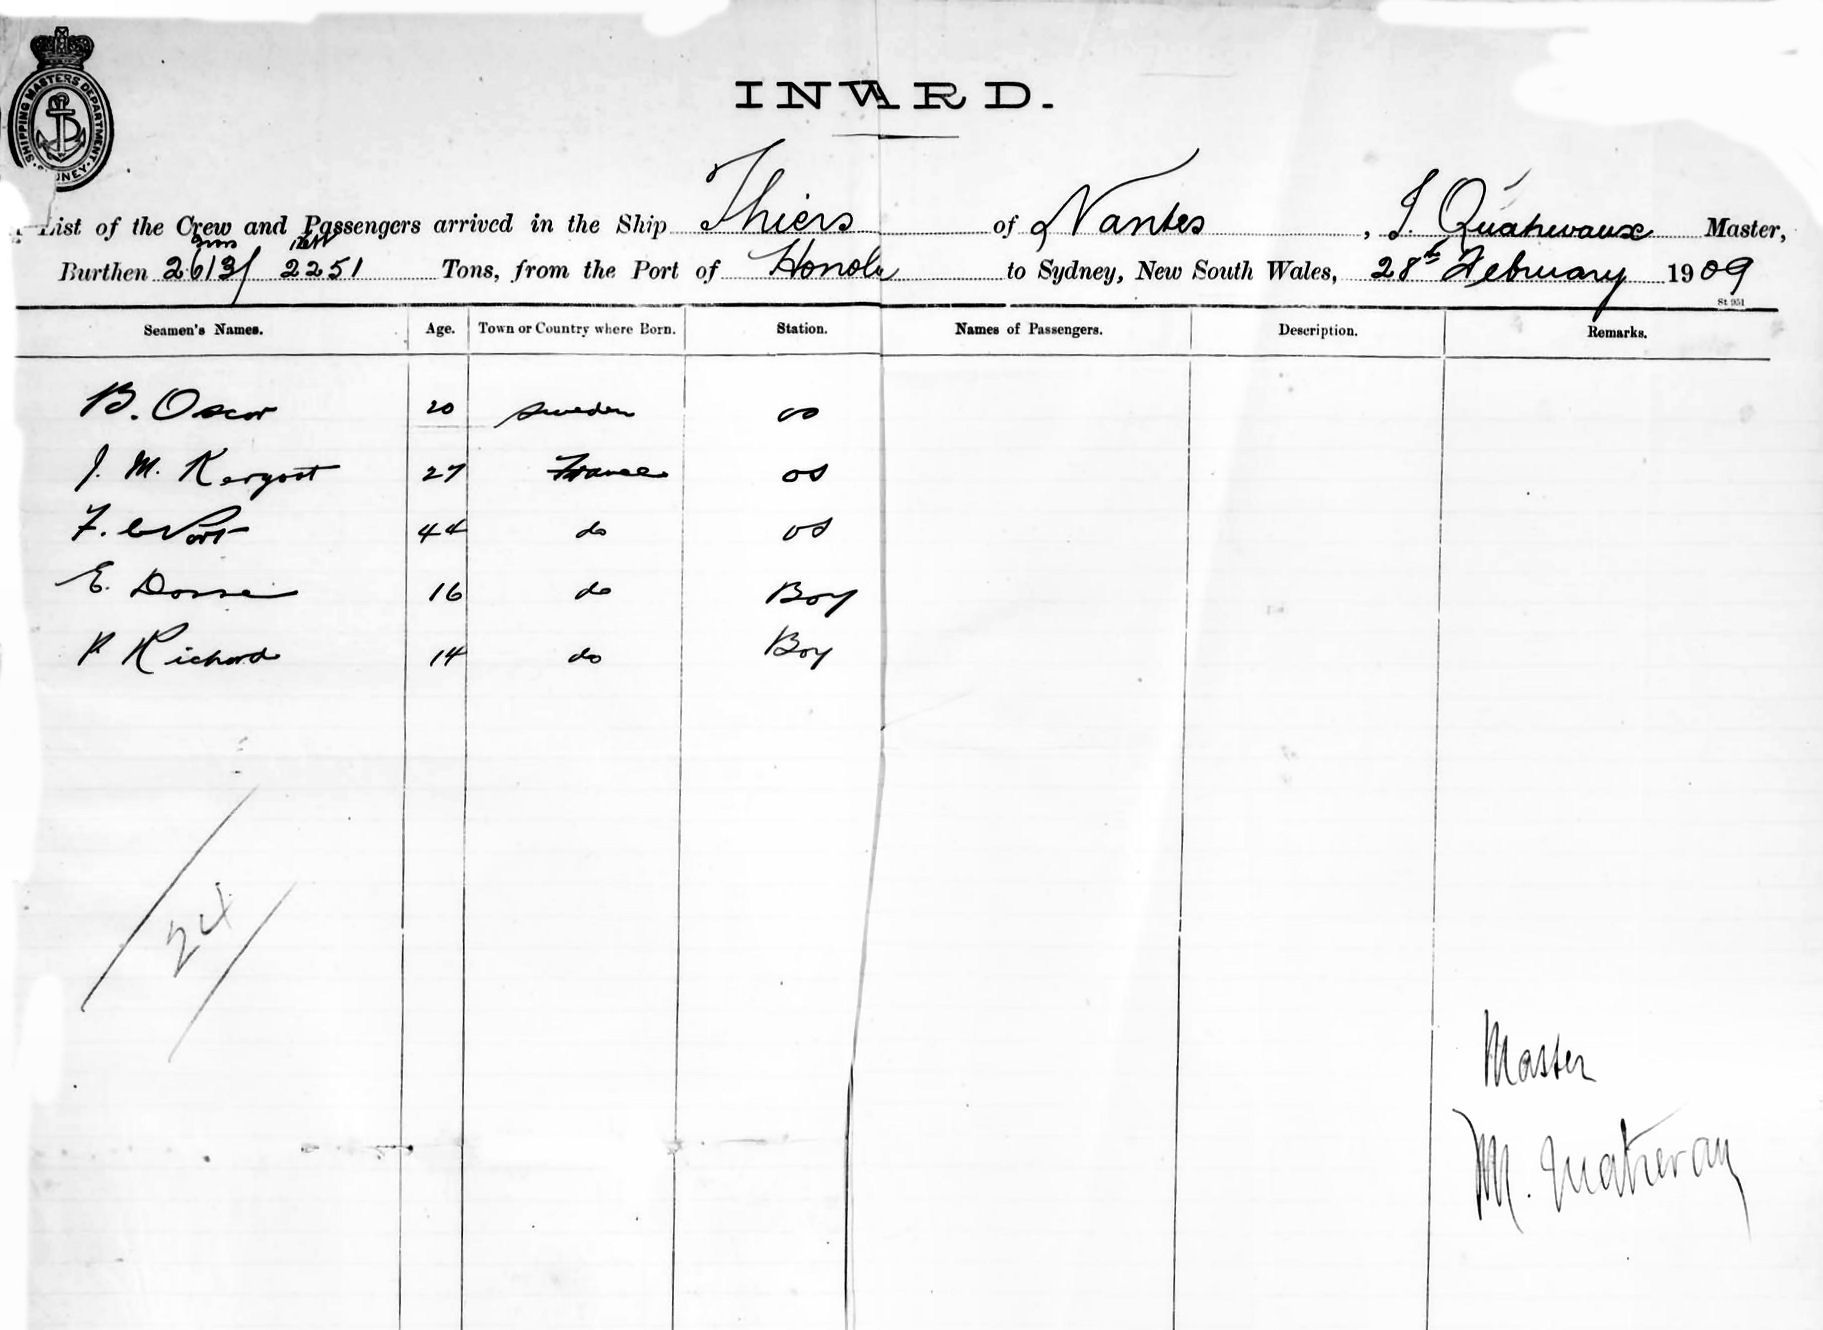 SHIPPING MASTERS DEPARTMENT SYDNEY
INWARD.
List of the Crew and Passengers arrived in the Ship Thiers of Nantes, J. Quatrevaux Master,
gross nett
Burthen 2613/ 2251 Tons, from the Port of Honolu to Sydney, New South Wales, 28th February 1909
St 951
Seamen's Names. Age. Town or Country where Born. Station. Names of Passengers. Description. Remarks.
B. Oscar 20 Sweden os
J. M. Kergost 27 France os
F. 44 do os
E. 16 do Boy
P Richard 14 do Boy
24
Master
M.